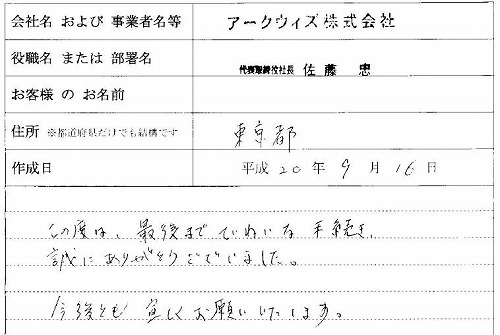 会社名 および 事業者名等 アークウィズ株式会社
役職名 または 部署名
代表取締役社長 佐藤 忠
お客様 の お名前
住所 ※都道府県だけでも結構です 東京都
作成日 平成 20 年 9 月 16 日
この度は、最後まで ていねいな 手続き、
誠に ありがとうございました。
今後とも 宜しく お願いいたします。